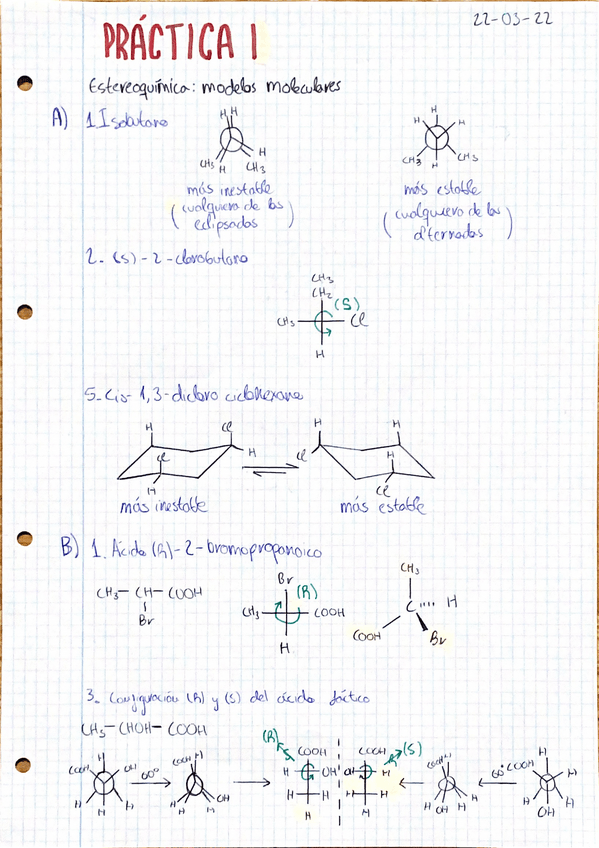 22-03-22
PRÁCTICA 1
Estereoquímica: modelos moleculares
A) 1. Isobutano
H H
CH₃ H H CH₃
H
H H
CH₃ H CH₃
más inestable
(cualquiera de los eclipsados)
más estable
(cualquiera de los alternados)
2. (S)-2-clorobutano
CH₃
CH₂ (S)
CH₃ Cl
H
5. Cis-1,3-dicloro ciclohexano
H Cl H H
Cl H Cl H
H Cl
más inestable más estable
B) 1. Ácido (R)-2-bromopropanoico
CH₃-CH-COOH
Br
Br (R)
CH₃ COOH
H
CH₃
C H
COOH Br
3. Configuración (R) y (S) del ácido láctico
CH₃-CHOH-COOH
(R) COOH COOH (S)
COOH H OH 60° COOH H H OH OH H COOH H 60° COOH H H
H H H H H OH H H H H H OH H H OH H
H H